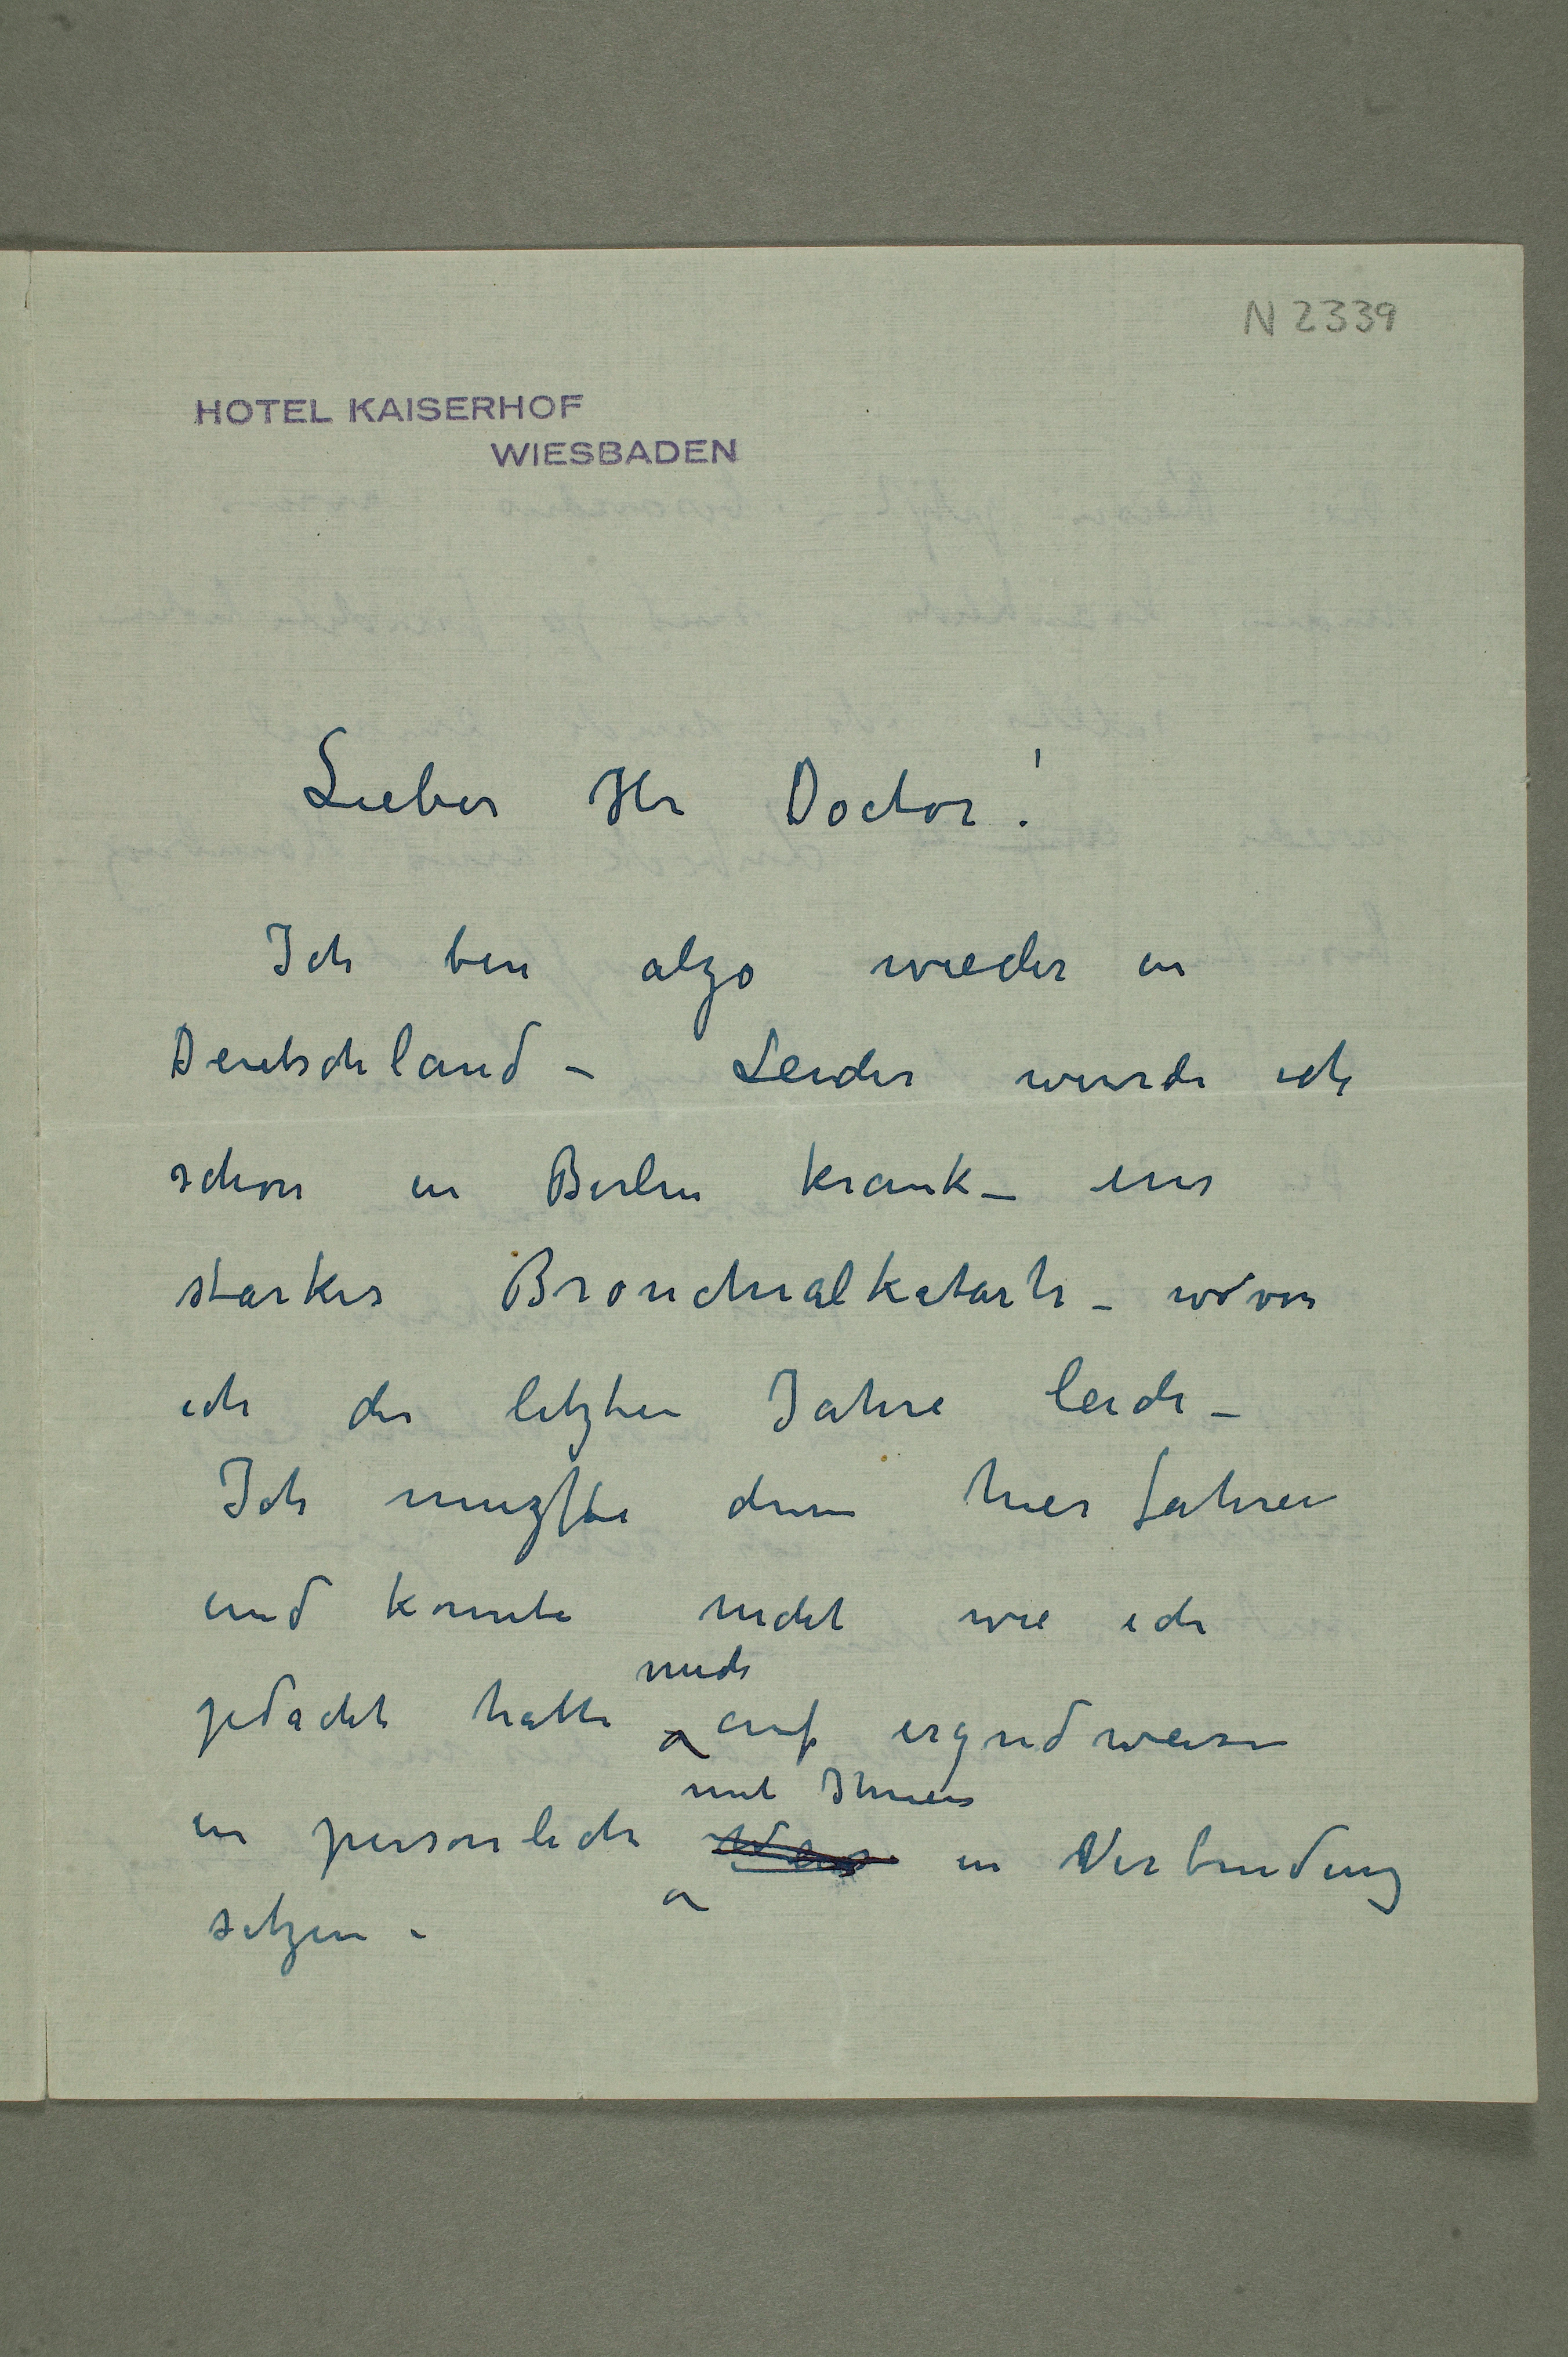 N 2339
HOTEL KAISERHOF
WIESBADEN
Lieber Hr Doctor!
Ich bin alzo wieder in
Deutschland – Leider wurde ich
schon in Berlin krank – ein
starker Bronchialkatarh – wovon
ich die letzten Jahre leide –
Ich muzste hier fahren
und konnte nicht wie ich
gedacht hatte mich auf irgndweise
in persönliche mit Ihnen in Verbindung
setzen –